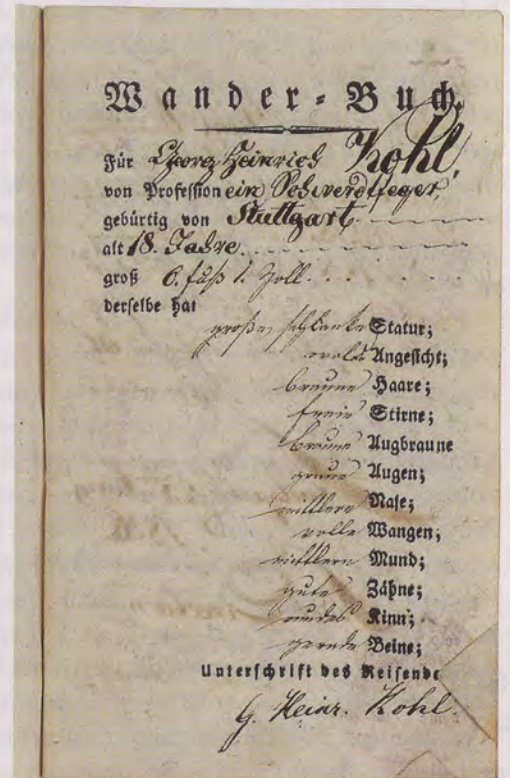 Wander-Buch.
Für Georg Heinrich Kohl,
von Profession ein Schwerdtfeger,
gebürtig von Stuttgart
alt 18. Jahre
groß 6. fuß 1. Zoll.
derselbe hat
große, schlanke Statur;
ovales Angesicht;
braune Haare;
freie Stirne;
braune Augbraune
graue Augen;
mittlere Nase;
volle Wangen;
mittlern Mund;
gute Zähne;
rundes Kinn;
gerade Beine;
Unterschrift des Reisende
G. Heinr. Kohl.